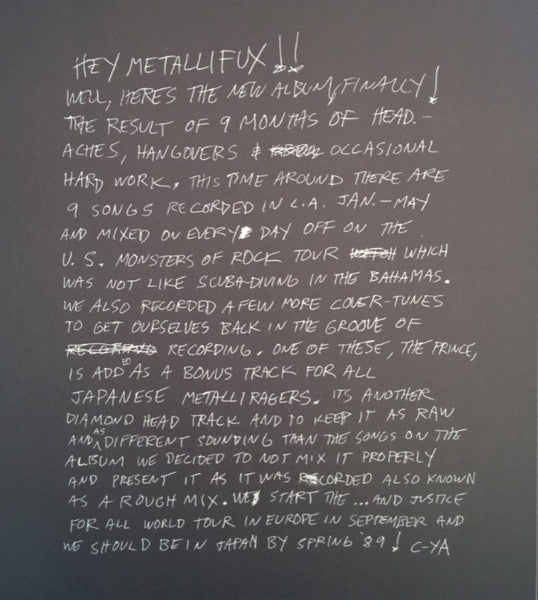 HEY METALLIFUX!!
WELL, HERES THE NEW ALBUM, FINALLY!
THE RESULT OF 9 MONTHS OF HEAD-
ACHES, HANGOVERS & OCCASIONAL
HARD WORK, THIS TIME AROUND THERE ARE
9 SONGS RECORDED IN L.A. JAN.-MAY
AND MIXED ON EVERY DAY OFF ON THE
U.S. MONSTERS OF ROCK TOUR WHICH
WAS NOT LIKE SCUBA-DIVING IN THE BAHAMAS.
WE ALSO RECORDED A FEW MORE COVER-TUNES
TO GET OURSELVES BACK IN THE GROOVE OF
RECORDING. ONE OF THESE, THE PRINCE,
IS ADDED AS A BONUS TRACK FOR ALL
JAPANESE METALLIRAGERS. ITS ANOTHER
DIAMOND HEAD TRACK AND TO KEEP IT AS RAW
AND AS DIFFERENT SOUNDING THAN THE SONGS ON THE
ALBUM WE DECIDED TO NOT MIX IT PROPERLY
AND PRESENT IT AS IT WAS RECORDED ALSO KNOWN
AS A ROUGH MIX. WE START THE ...AND JUSTICE
FOR ALL WORLD TOUR IN EUROPE IN SEPTEMBER AND
WE SHOULD BE IN JAPAN BY SPRING '89! C-YA